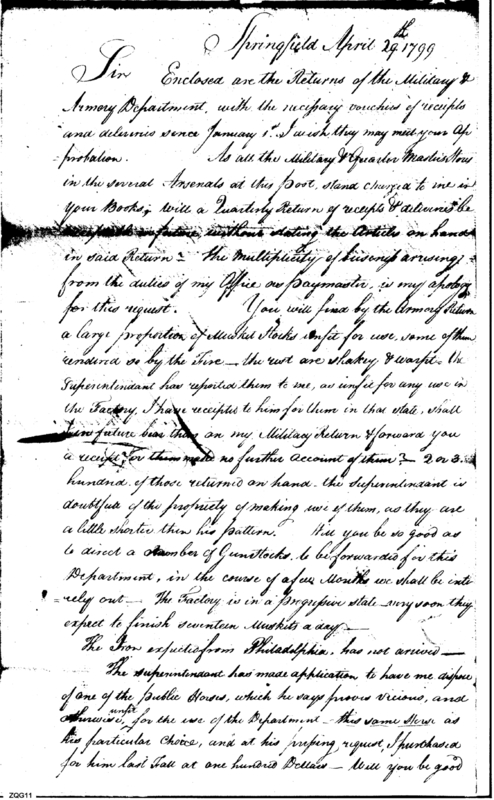 Springfield April 29th 1799
Sir Enclosed are the Returns of the Military &
Armory Department, with the necessary vouchers of receipts
and deliveries since January 1st. I wish they may meet your Ap
=probation. As all the Military & Quarter Master's Stores
in the several Arsenals at this post, stand charged to me in
Your Books; Will a Quarterly Return of receipts & deliveries be
in future, without stating the Articles on hand
in said Return? The Multiplicity of business arising
from the duties of my Office as paymaster, is my apology
for this request. You will find by the Armory Return
a large proportion of Musket Stocks unfit for use, some of them
rendered so by the Fire — the rest are shakey & warpt. The
Superintendant has reported them to me, as unfit for any use in
the Factory, I have receipted to him for them in that state, shall
in future bear them on my Military Return & forward you
a receipt for them make no further account of them? — 2 or 3
hundred of those returned on hand the Superintendant is
doubtful of the propriety of making use of them, as they are
a little shorter then his pattern. Will you be so good as
to direct a number of Gunstocks to be forwarded for this
Department, in the course of a few Months we shall be inti
=rely out — The Factory is in a progressive state — very soon they
expect to finish seventeen Muskets a day —
The Iron expected from Philadelphia, has not arrived —
The superintendant has made application to have me dispose
of one of the public Horses, which he says proves vicious, and
otherwise unfit for the use of the Department — this same Horse as
his particular choice, and at his pressing request, I purchased
for him last Fall at one hundred Dollars — Will you be good
ZQG11